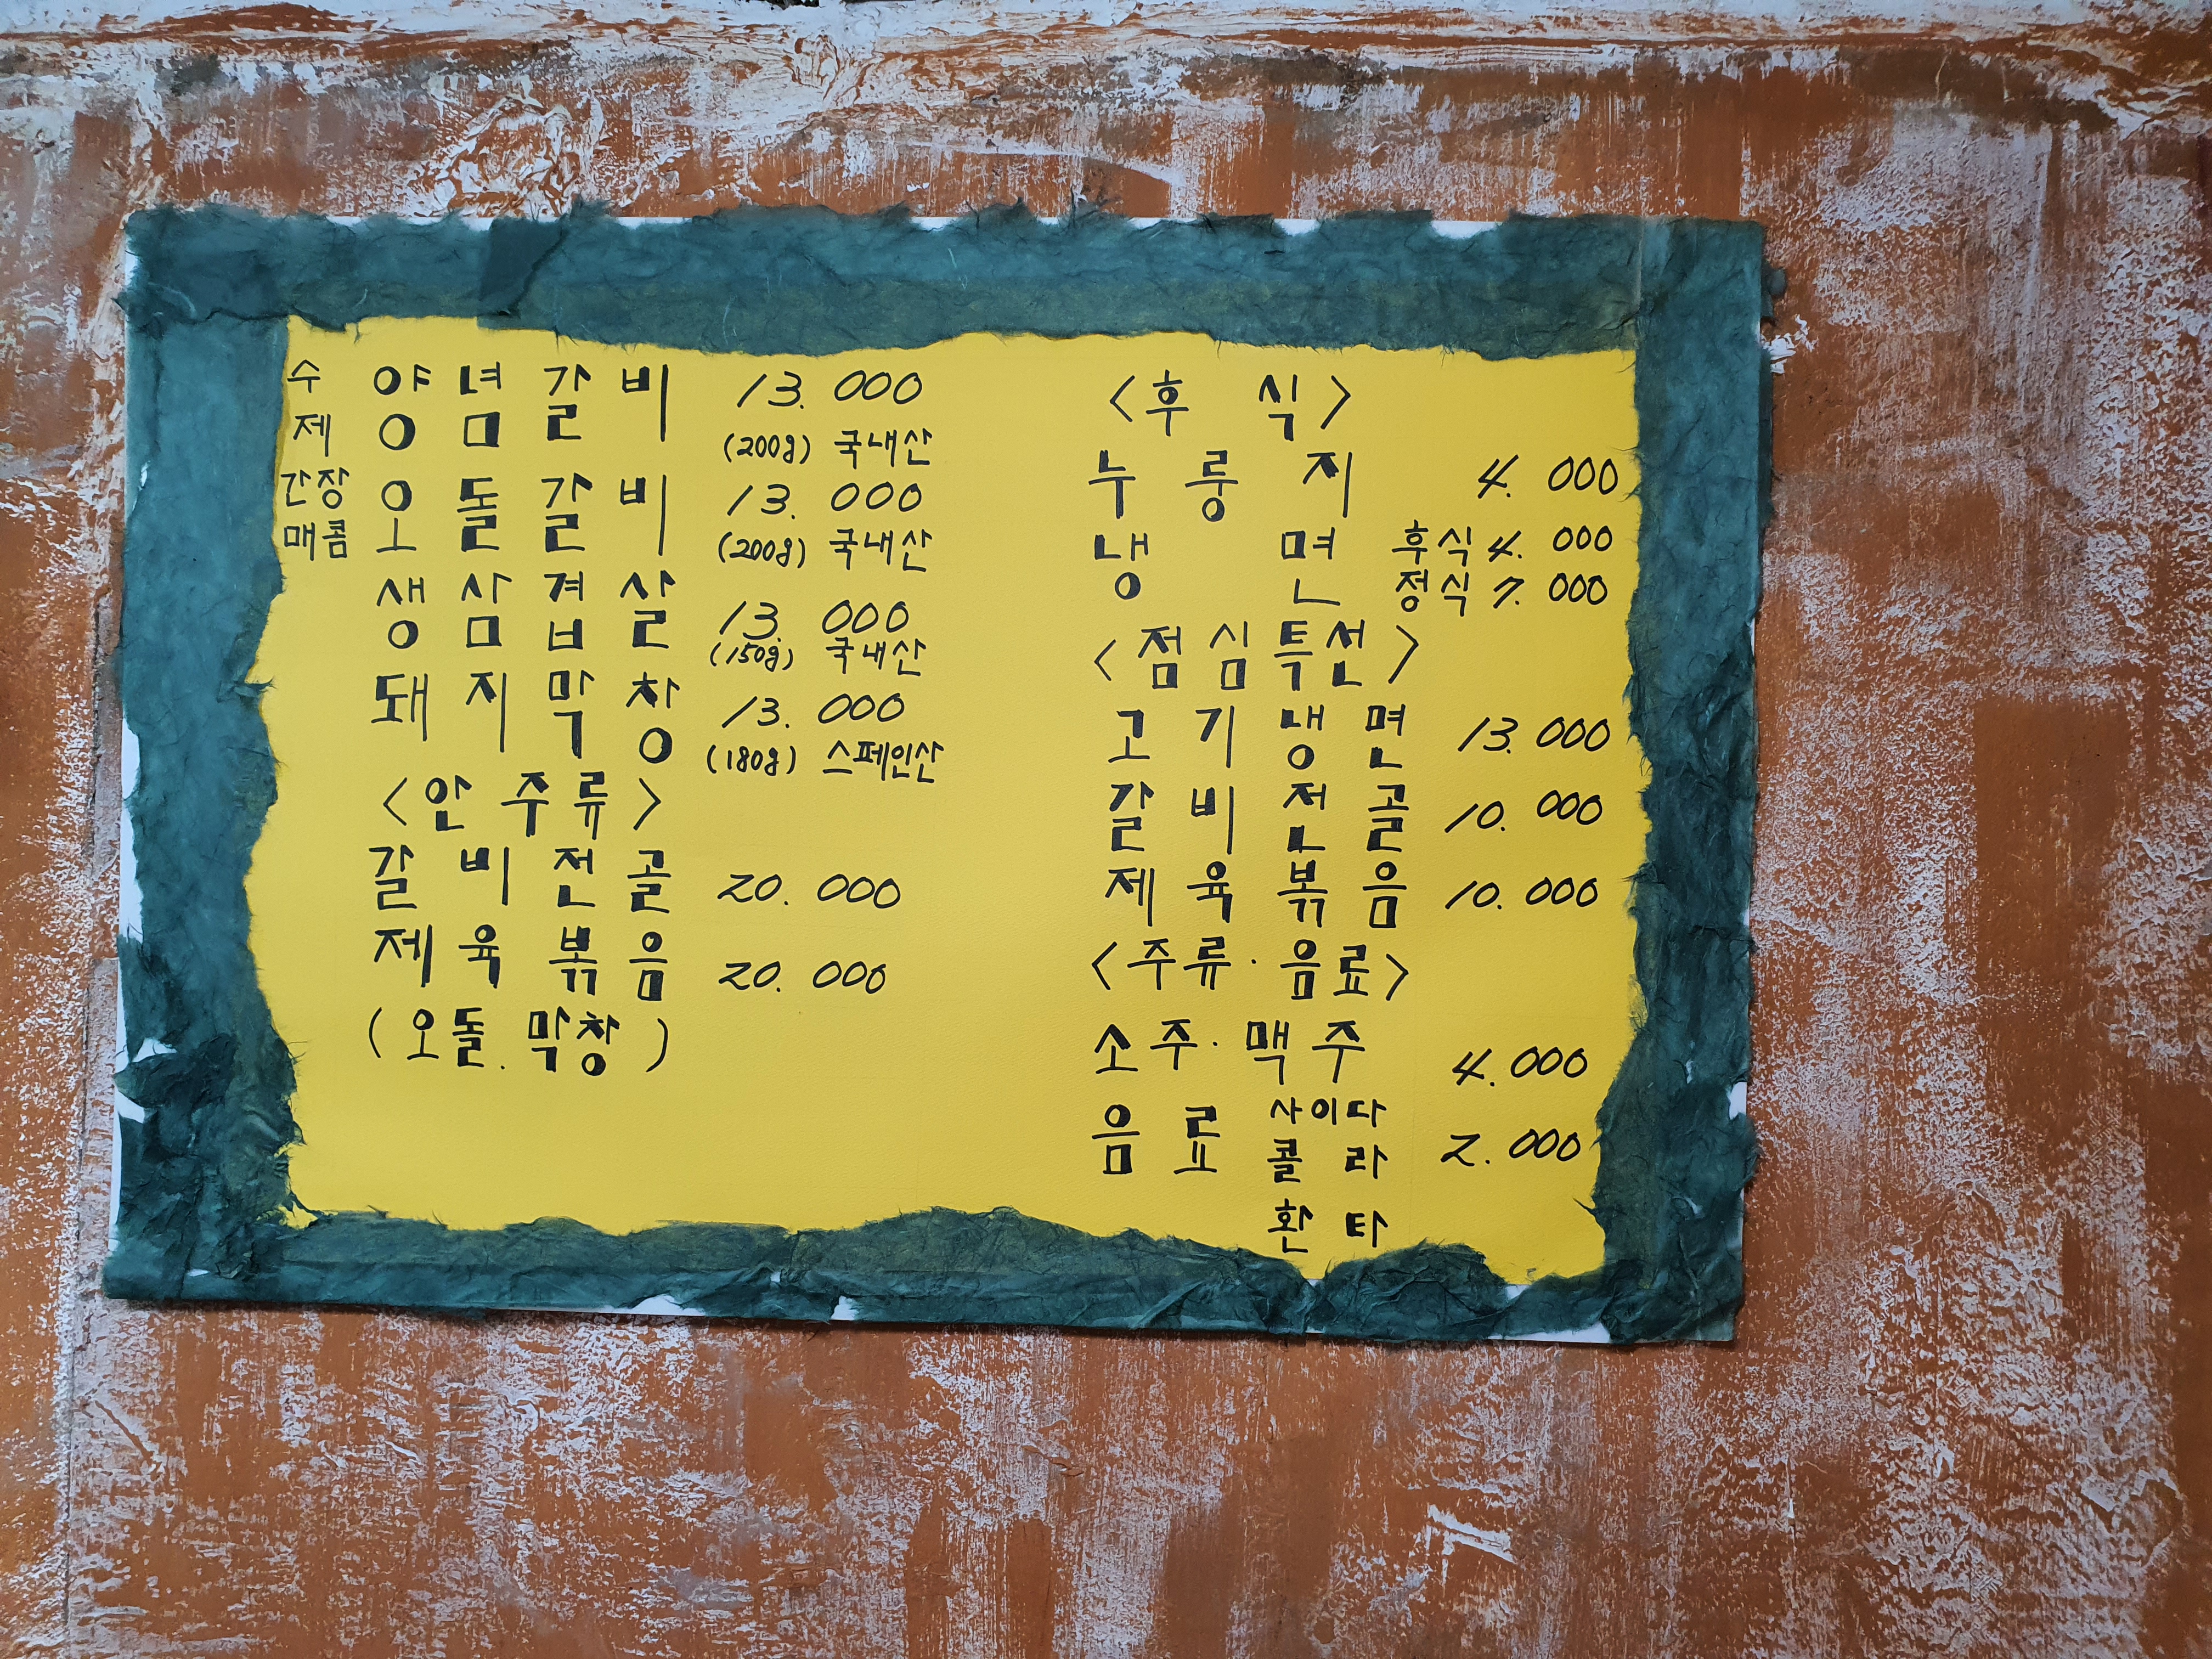 수제 양념갈비 13.000
(200g) 국내산
간장 매콤 오돌갈비 13.000
(200g) 국내산
생삼겹살 13.000
(150g) 국내산
돼지막창 13.000
(180g) 스페인산
<안주류>
갈비전골 20.000
제육볶음 20.000
(오돌.막창)
<후식>
누룽지 4.000
냉면 후식 4.000
정식 7.000
<점심특선>
고기냉면 13.000
갈비전골 10.000
제육볶음 10.000
<주류·음료>
소주·맥주 4.000
음료 사이다
콜라 2.000
환타